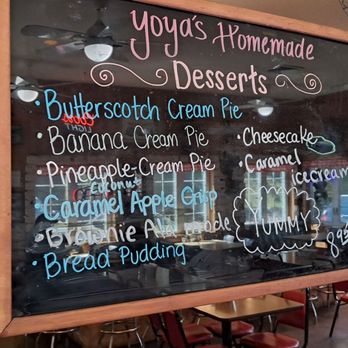 Yoya's Homemade
Desserts
• Butterscotch Cream Pie
• Banana Cream Pie
• Pineapple Cream Pie
Coconut
• Caramel Apple Crisp
• Brownie Ala mode
• Bread Pudding
• Cheesecake
• Caramel
icecream
YUMMY